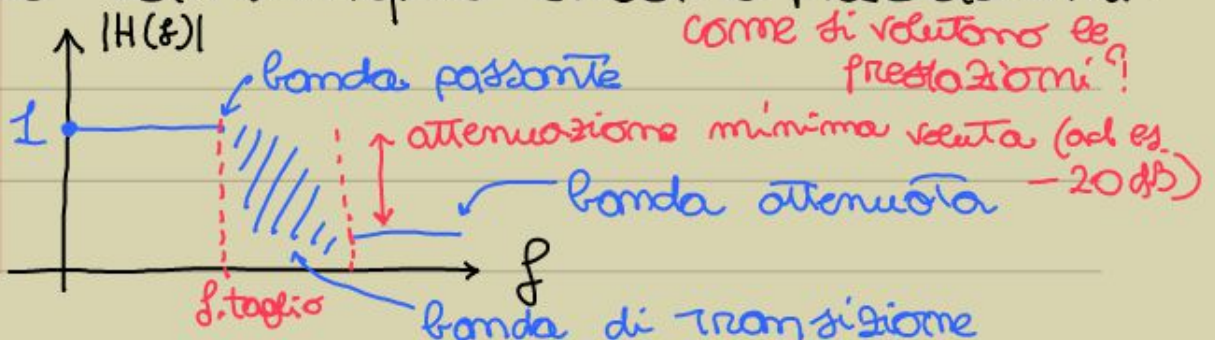 |H(f)|
come si valutano le
prestazioni?
banda passante
1
attenuazione minima voluta (ad es.
-20 dB)
banda attenuata
f
f. taglio
banda di transizione